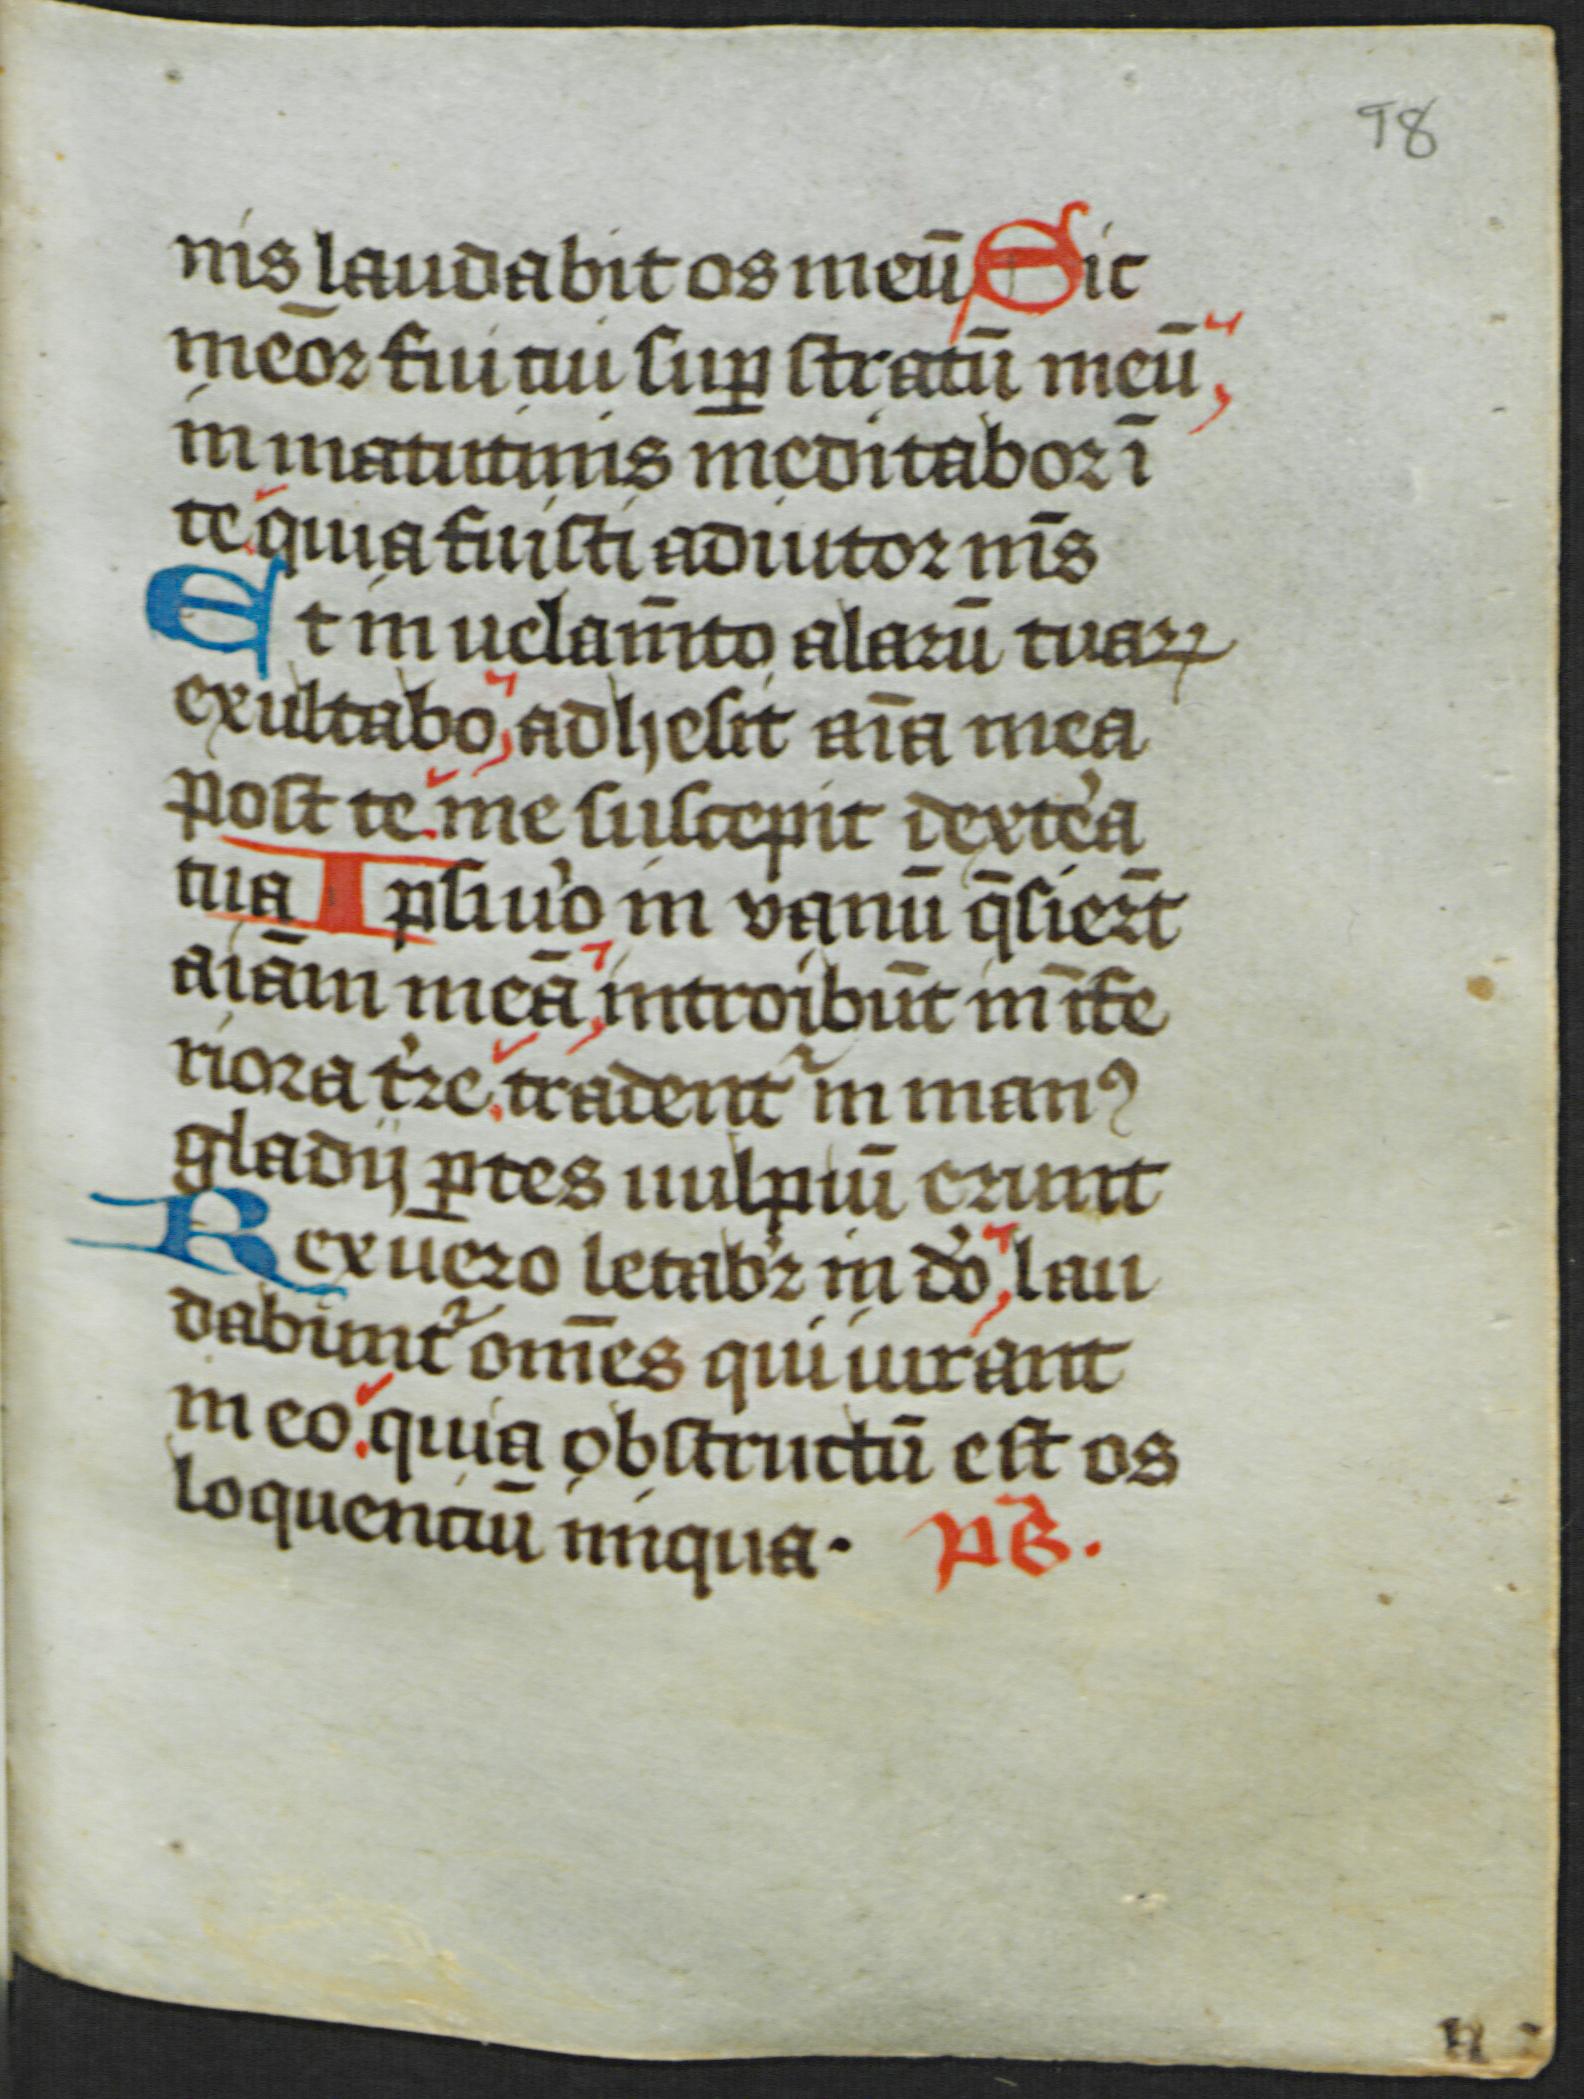 98
nis laudabit os meū Sic
meōr fui tui suꝑ stratū meū,
in matutinis meditabor ī
te. quia fuisti adiutor m̄s
Et in uelam̄to alarū tuaꝝ
exultabo, adhesit aīa mea
post te. me suscepit dext̓a
tua Ipsi u̓o in vanū q̄siert̄
aīam meā, introibūt in īfe
riora t̓re. tradentᷣ in manꝰ
gladij ꝑtes uulpiū erunt
Rex uero letabᷣr in d̓o, lau
dabuntᷣ om̄es qui iurant
in eo. quia obstructū est os
loquentiū iniqua. ps̄.